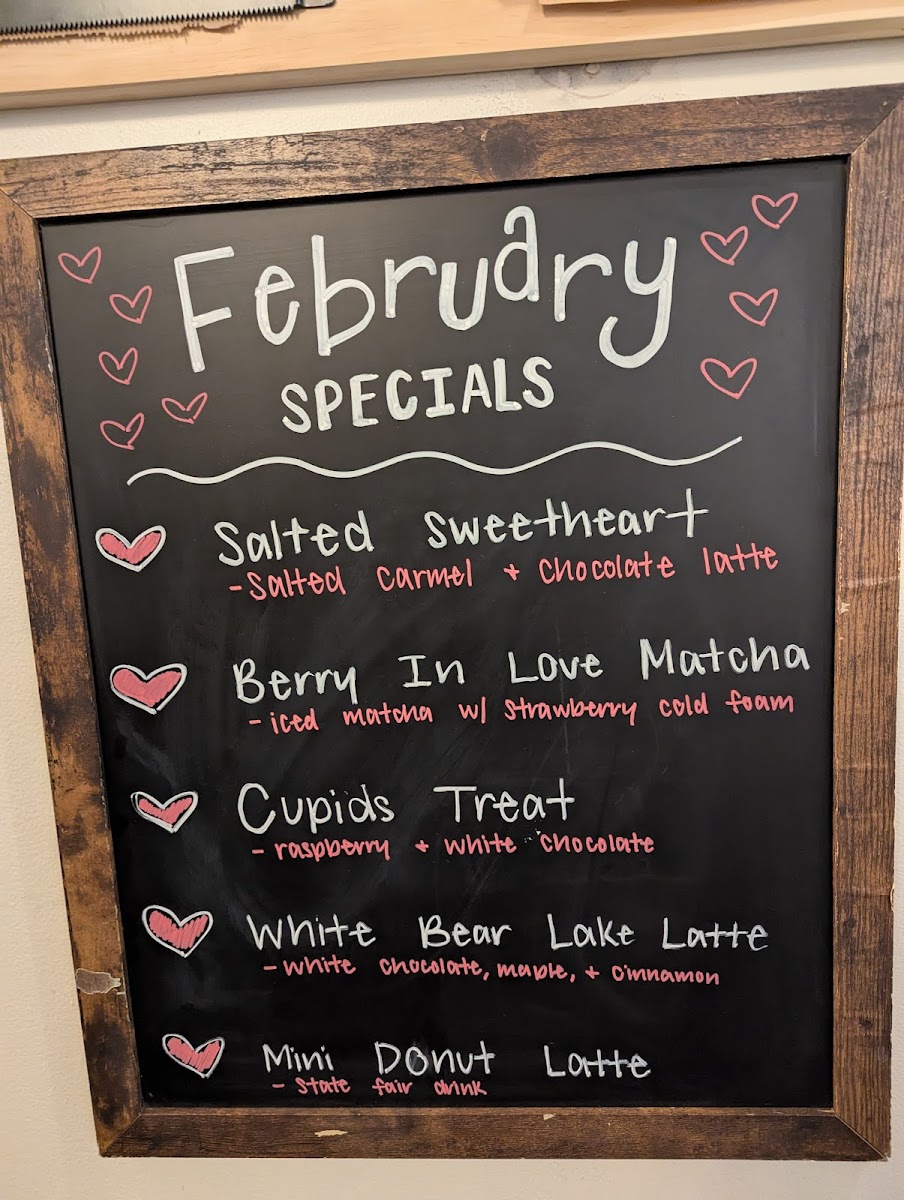 February
SPECIALS
Salted Sweetheart
- Salted Carmel + Chocolate latte
Berry In Love Matcha
- iced matcha w/ Strawberry cold foam
Cupids Treat
- raspberry + white chocolate
White Bear Lake Latte
- white chocolate, maple, + cinnamon
Mini Donut Latte
- State fair drink